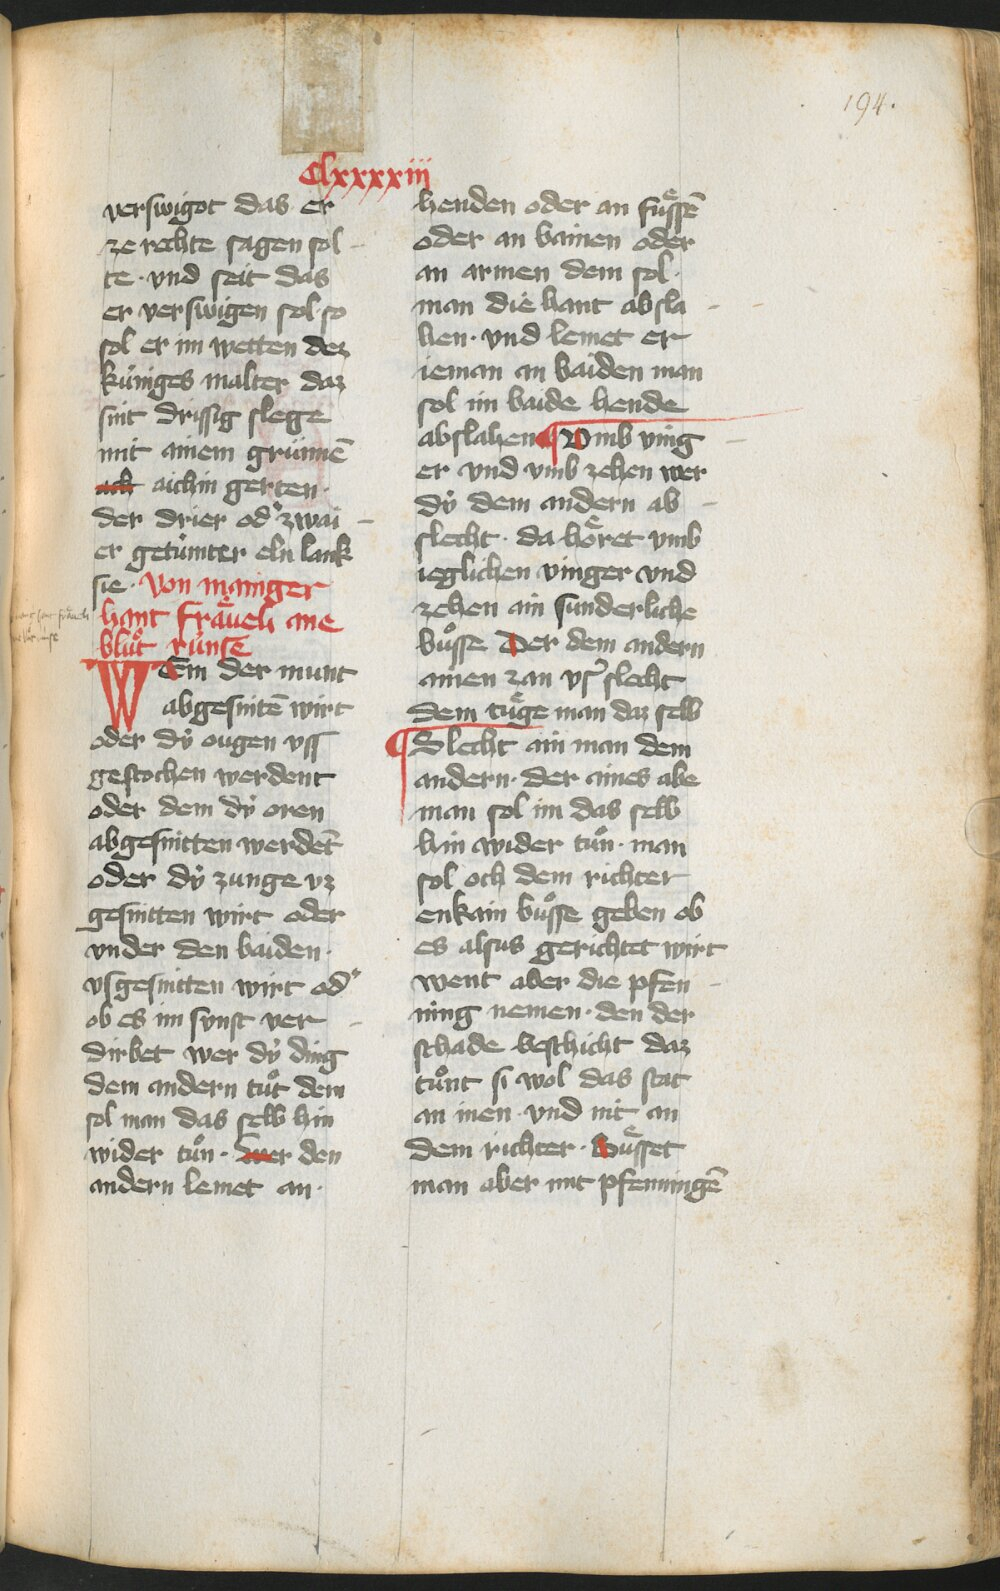 194.
Clxxxxiii
verswigot das er
ze rechte sagen sol
te · vnd seit das
er verswigen sol · so
sol er im wetten dez
küniges malter daz
sint drissig slege
mit ainem grünnē
ach aichin gerten ·
der drier od᷒ zwai
er getümter eln lank
sie · Von maniger
hant fräueli ane
blůt runse
WEm der munt
abgesnitē wirt
oder dÿ ougen vss
gestochen werdent
oder dem dÿ oren
abgesnitten werdēt
oder dÿ zunge vz
gesnitten wirt oder
vnder den baiden ·
vsgesnitten wirt od᷒
ob es im sunst ver
dirbet wer dÿ ding
dem andern tůt dem
sol man das selb hin
wider tůn · Swer den
andern lemet an ·
henden oder an fůssē
oder an bainen oder
an armen dem sol ·
man die hant absla
hen · vnd lemet er
ieman an baiden man
sol im baide hende
abslahen ¶ Vmb ving
er vnd vmb zehen wer
dÿ dem andern ab
slecht · da höret vmb
ieglichen vinger vnd
zehen ain sunderliche
bůsse Der dem andern
ainen zan vsz slecht
dem tůge man daz selb
¶ Slecht ain man dem
andern · der aines abe
man sol im das selb
hin wider tůn · man
sol och dem richter
enkain bůsse geben ob
es alsus gerichtet wirt
went aber die pfen
ning nemen · den der
schade beschicht daz
tůnt si wol das stat
an inen · vnd nit an
dem richter · Bůsset
man aber mit pfenningē